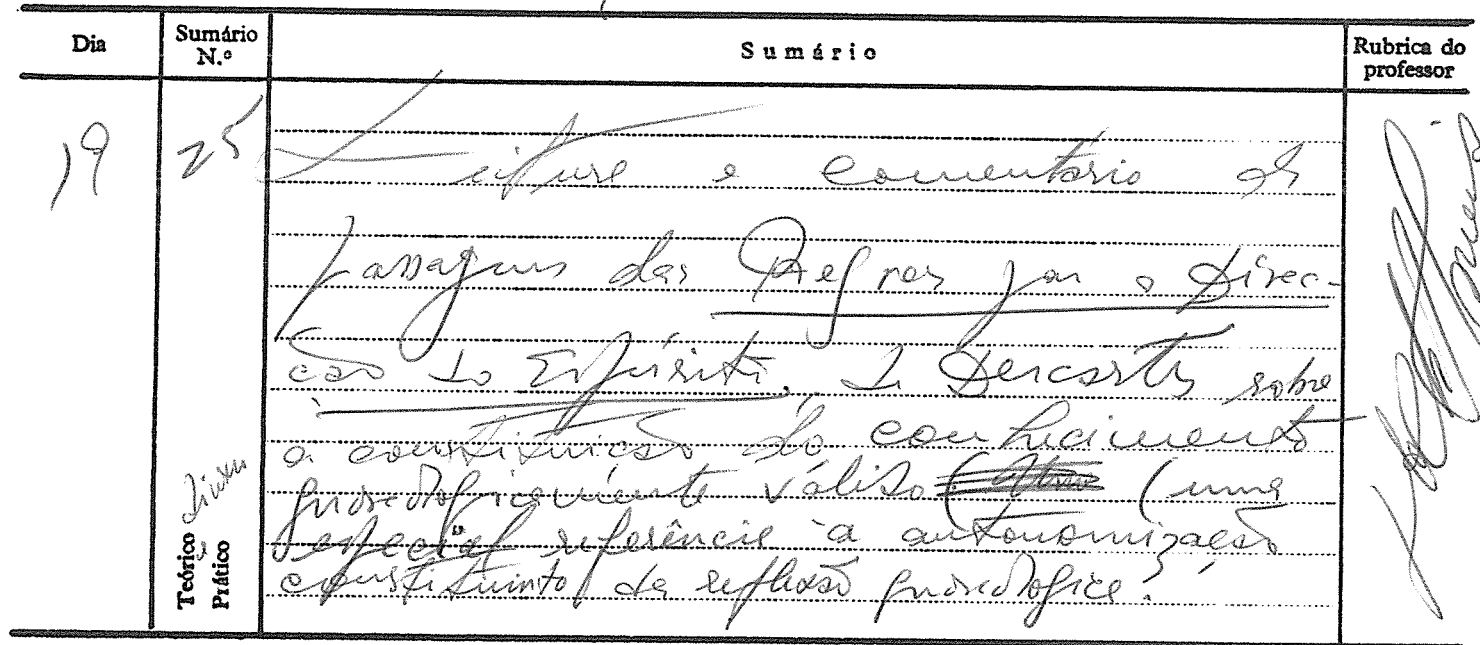 Dia Sumário N.º Sumário Rubrica do professor
19 25 Leitura e comentário de
passagens das Regras para a Direc-
ção do Espírito, de Descartes sobre
a constituição do conhecimento
gnoseologicamente válido (uma
especial referência à autonomização
constituinte da reflexão gnoseológica?
Teórico
Prático